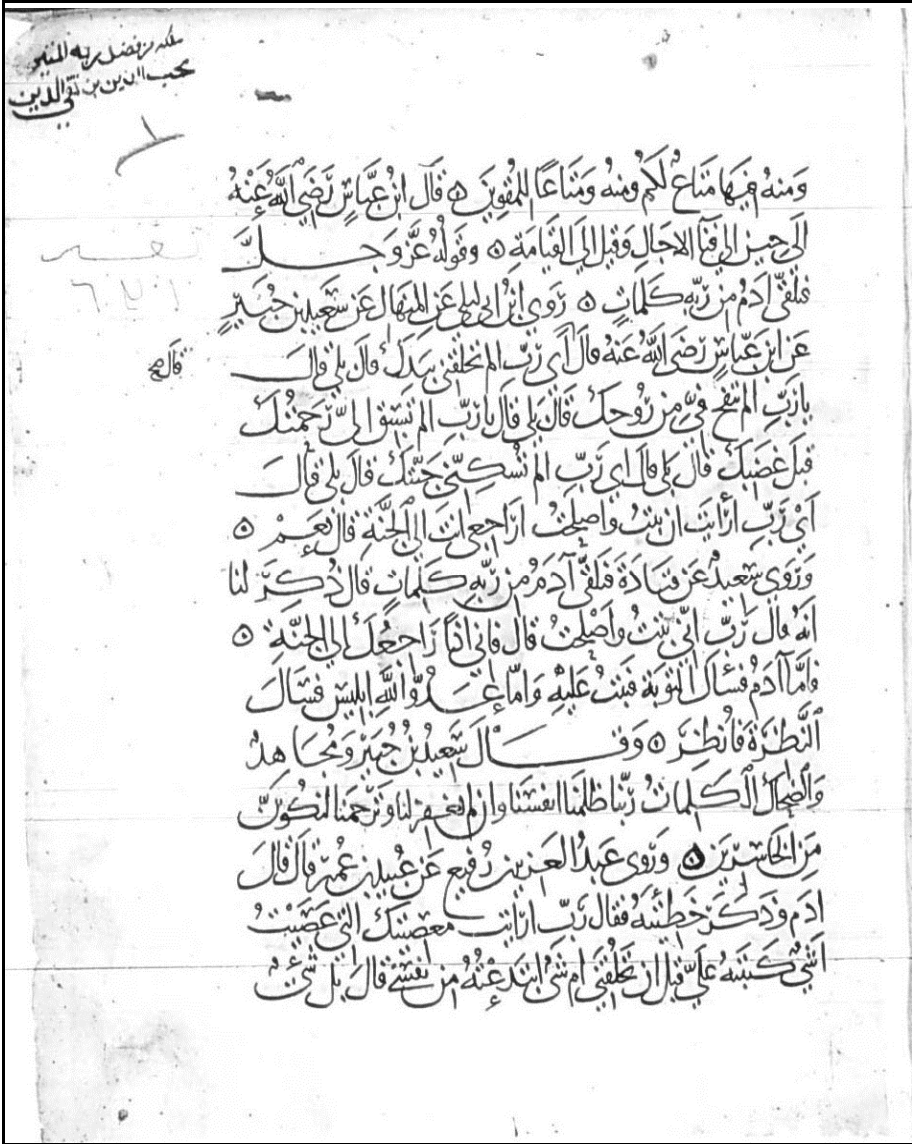 ملكه من فضل ربه المنير
محب الدين بن تقي الدين
١
ومنه فيها متاع لكم ومنه ومتاعًا للمقوين ٥ قال ابن عباس رضي الله عنه
الى حين الى فنآ الاجال وقيل الى القيامة ٥ وقوله عز وجل
تفسير
فتلقى آدم من ربه كلمات ٥ روى ابن ابي ليلى عن المنهال عن سعيد بن جبير
عن ابن عباس رضي الله عنه قال أي رب الم تخلقني بيدك قال بلى قال
قال صح
يا رب الم تنفخ فيّ من روحك قال بلى قال يا رب الم تسبق اليّ رحمتك
قبل غضبك قال بلى قال اي رب الم تسكني جنتك قال بلى قال
اي رب ارأيت ان تبت واصلحت اراجعي انت الى الجنة قال نعم ٥
وروى سعيد عن قتادة فتلقى آدم من ربه كلمات قال ذكر لنا
انه قال رب اني تبت واصلحت قال فاني اذًا راجعك الى الجنة ٥
فاما آدم فسأل التوبة فتبت عليه واما عدو الله ابليس فسال
النظرة فانظر ٥ وقال سعيد بن جبير ومجاهد
والضحاك الكلمات ربنا ظلمنا انفسنا وان لم تغفر لنا وترحمنا لنكونن
من الخاسرين ٥ وروى عبد العزيز بن رفيع عن عبيد بن عمير قال قال
ادم وذكر خطيئته فقال رب ارايت معصيتك التي عصيت
اشي كتبته علي قبل ان تخلقني ام شي ابتدعته من نفسي قال بل شئ